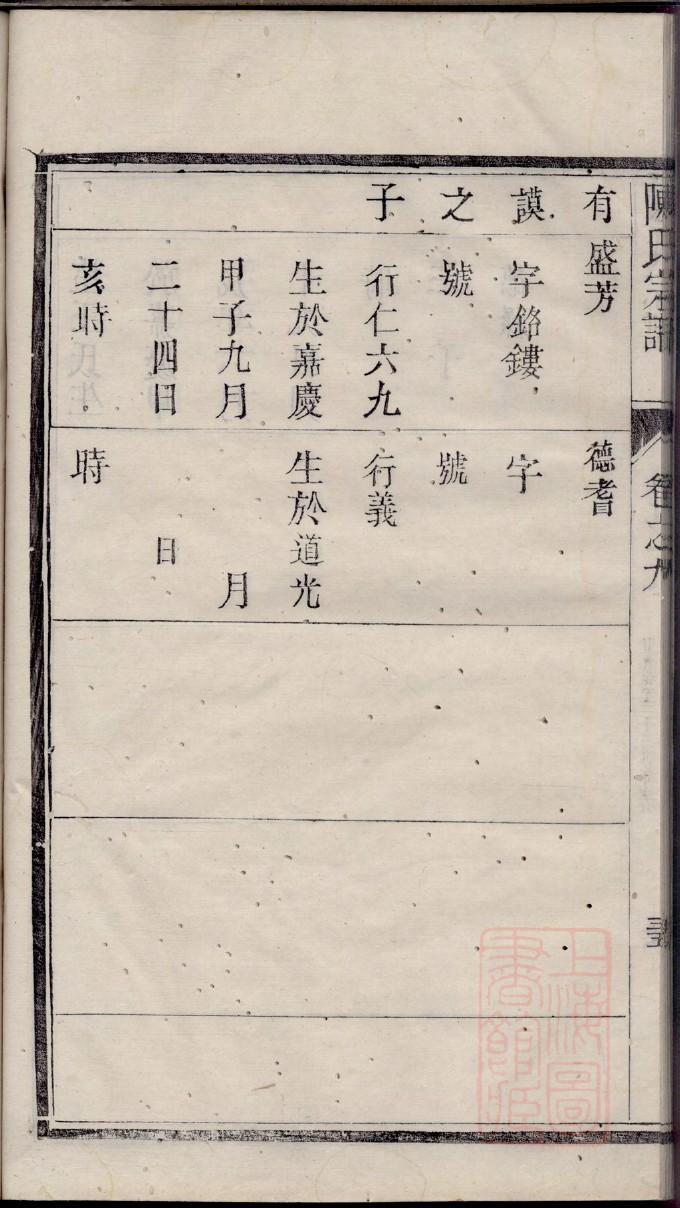 陳氏宗譜
卷之九
有謨之子
盛芳
字銘鏤
號
行仁六九
生於嘉慶
甲子九月
二十四日
亥時
德耆
字
號
行義
生於道光
月
日
時
上海圖
書館藏